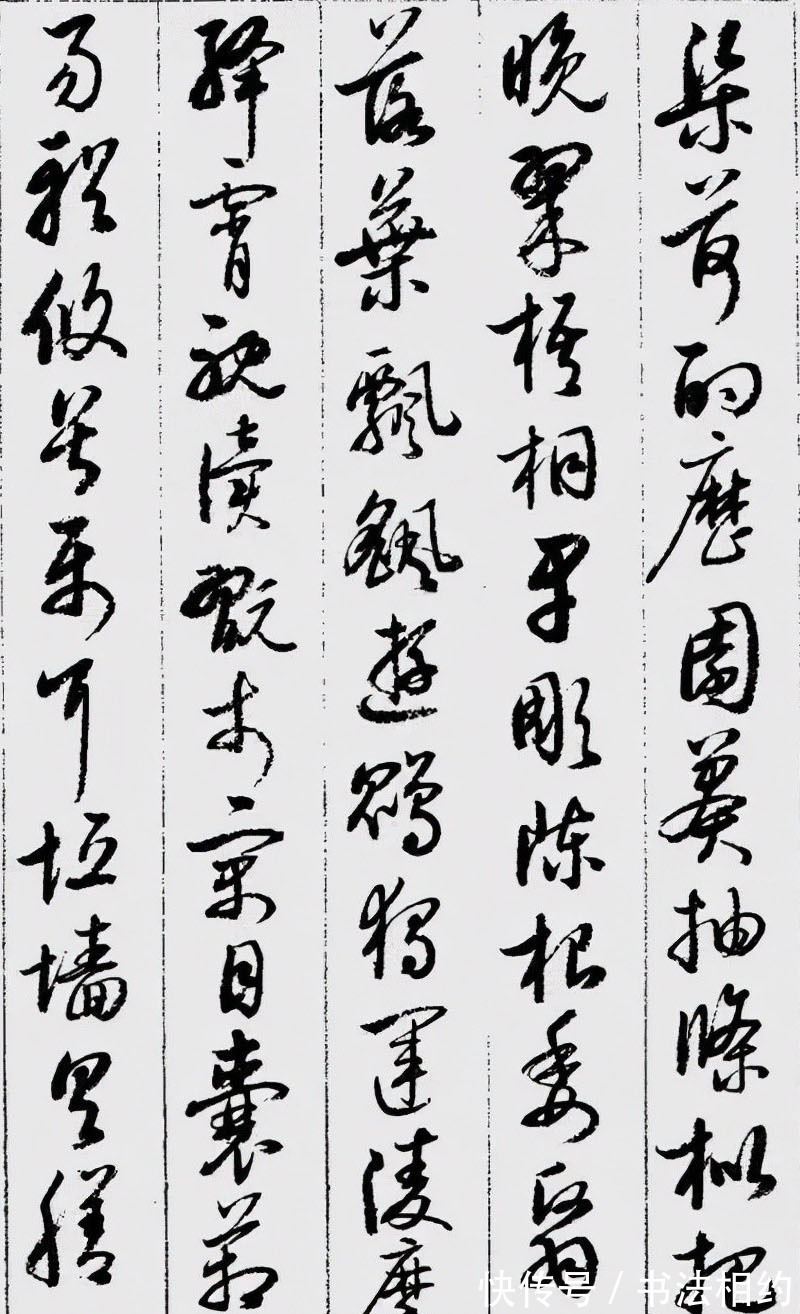 渠荷的歷園莽抽條枇杷
晚翠梧桐早彫陳根委翳
落葉飄颻遊鵾獨運凌摩
絳霄耽讀翫市寓目囊箱
易輶攸畏屬耳垣墻具膳
快传号 / 书法相约